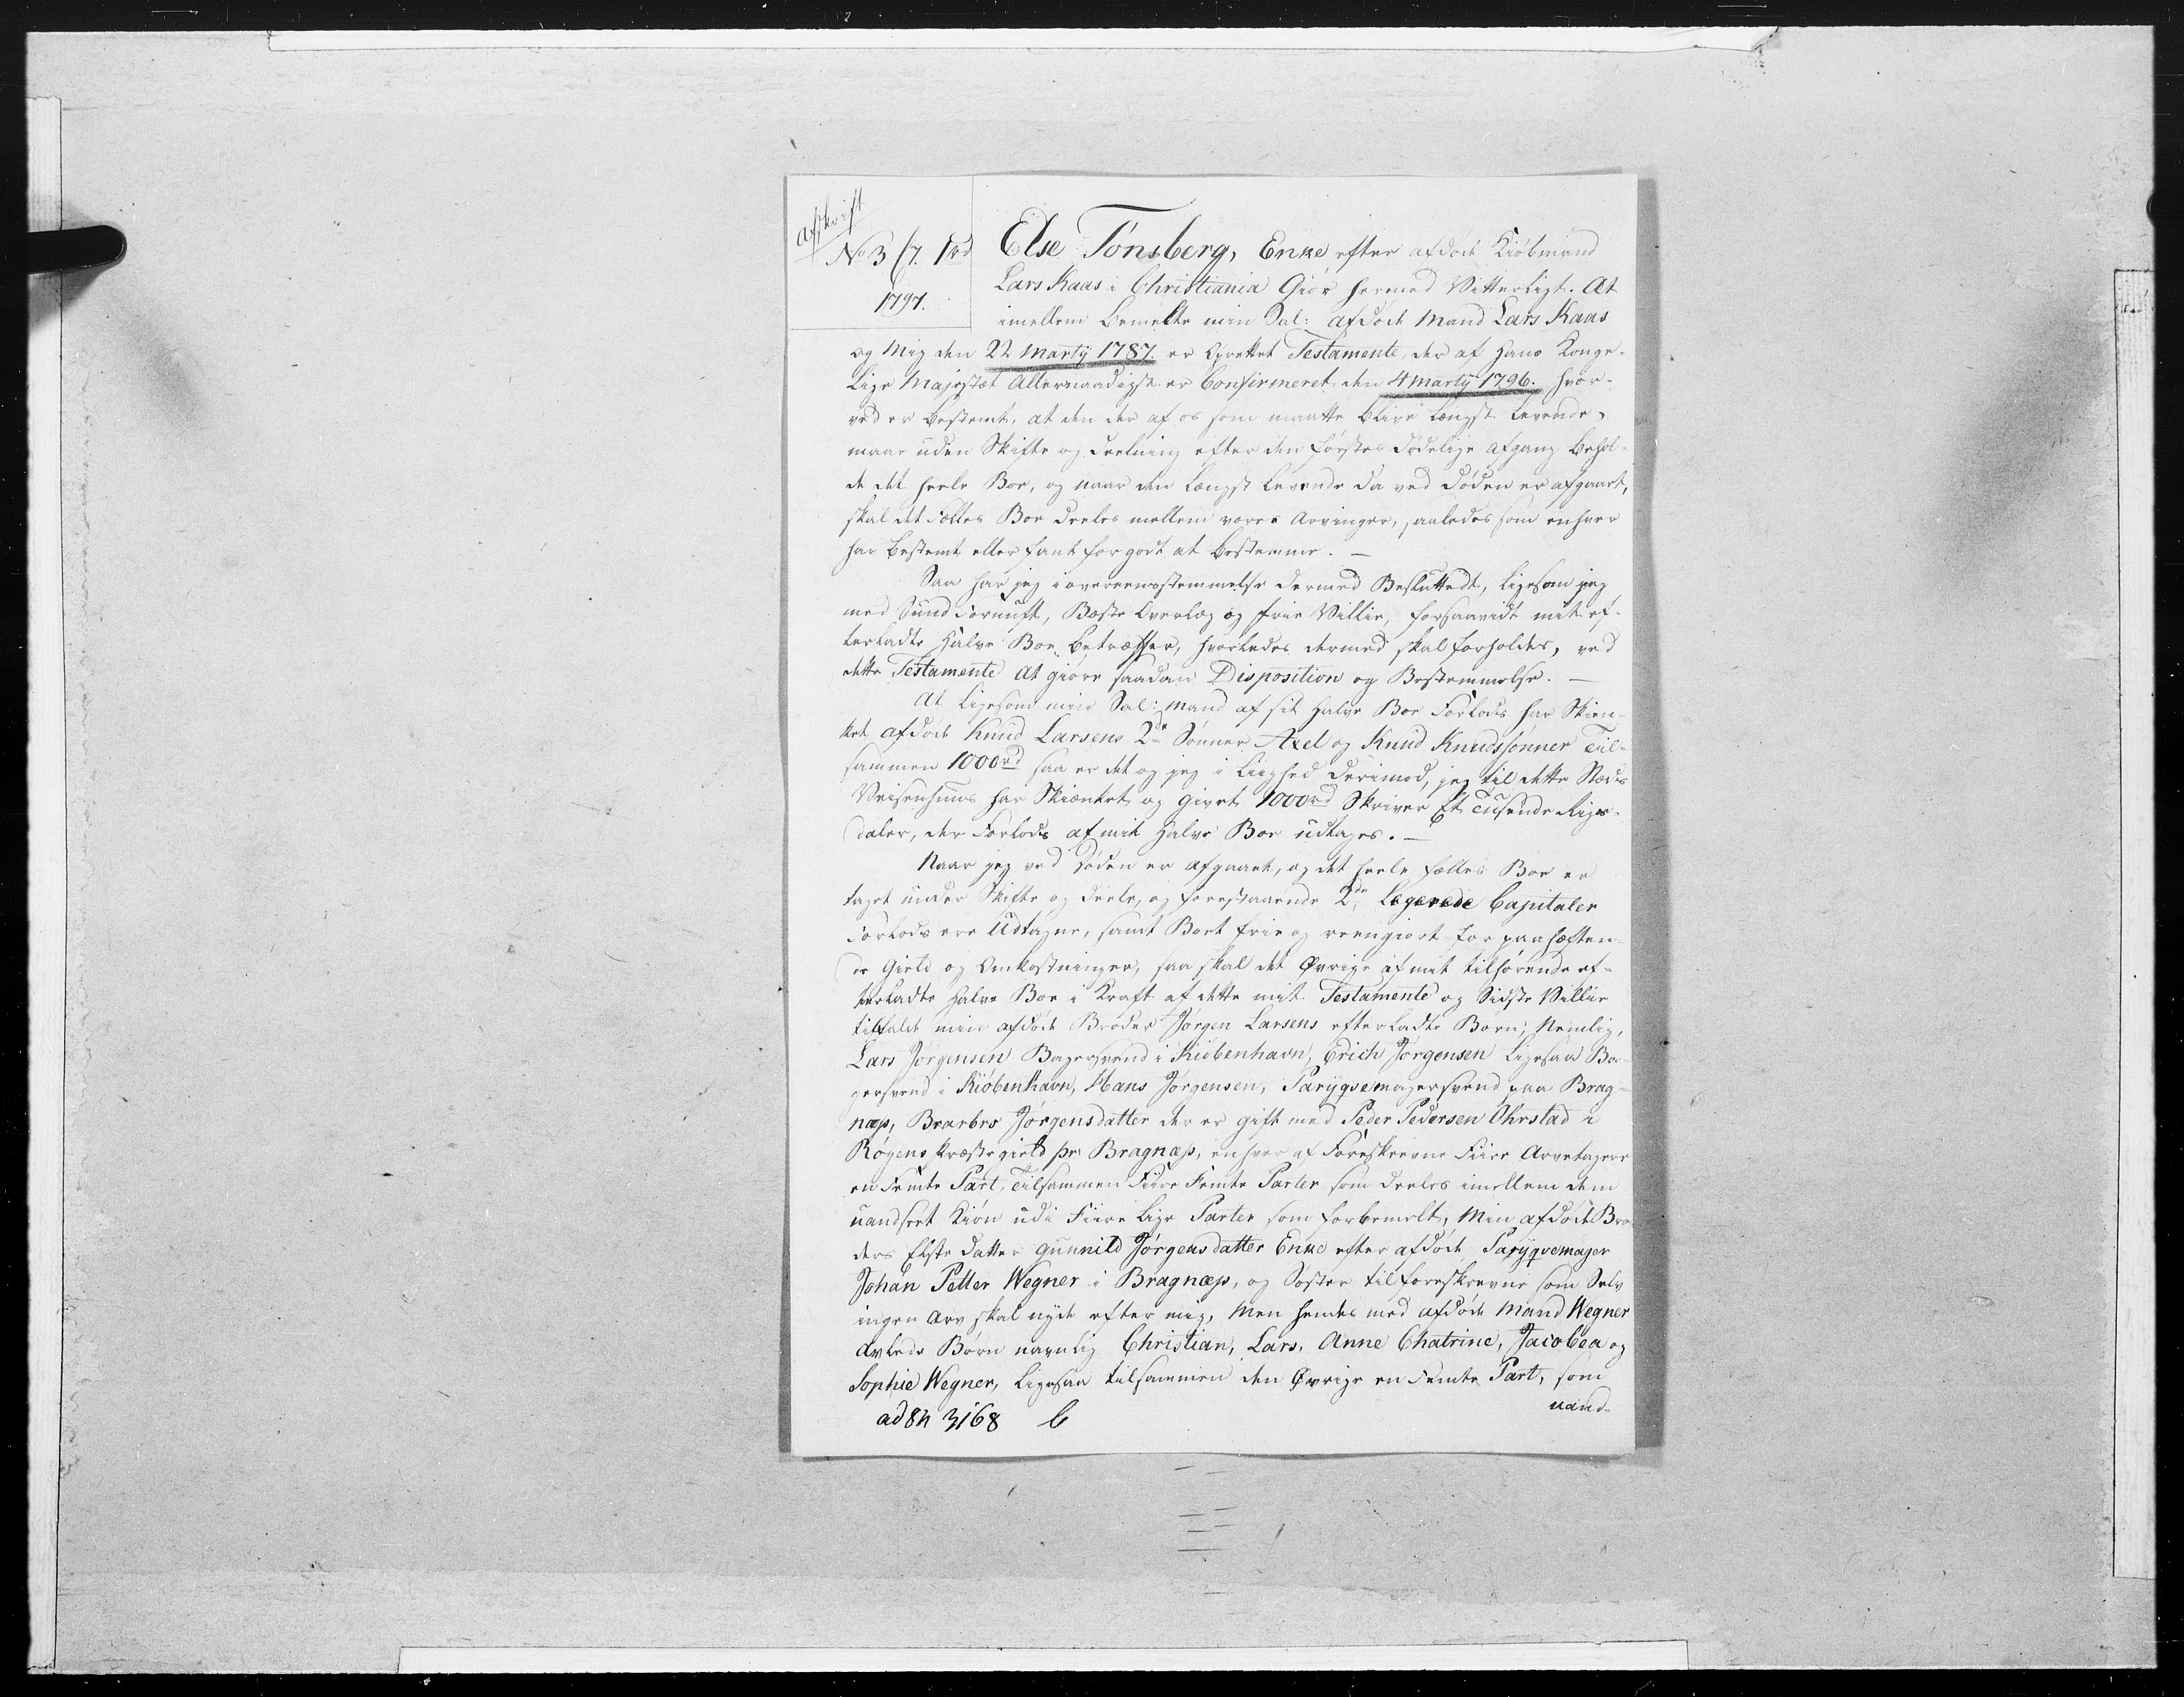 Afskrift
No 3 /7. 1rd
1797.
Else Tønsberg, Enke efter afdøde Kiøbmand
Lars Kaas i Christiania Giør hermed Vitterligt. At
imellem bemelte min Sal: afdøde Mand Lars Kaas
og Mig den 22 Martÿ 1787. er oprettet Testamente, der af Hans Konge-
lige Majestæt Allernaadigst er Confirmeret den 4 Martÿ 1796. hvor-
ved er bestemt, at den der af os som maatte blive længst levende,
maae uden Skifte og Deelning efter den førstes dødelige afgang behol-
de det heele Boe, og naar den længst levende da ved Døden er afgaaet,
skal det Fælles Boe deeles mellem vores Arvinger, saaledes som enhver
har bestemt eller fant for godt at bestemme. —
Saa har jeg i overeensstemmelse dermed Besluttedt, ligesom jeg
med Sund Fornuft, Beste Overlæg og frie Villie, forsaavidt mit ef-
terladte Halve Boe betræffer, hvorledes dermed skal forholdes, ved
dette Testamente at giøre saadan Disposition og Bestemmelse. —
At ligesom min Sal: Mand af sit halve Boe Forlods har Skien-
ket afdøde Knud Larsens 2de Sønner Axel og Knud Knudssønner Til-
sammen 1000rd saa er det og jeg i Liighed derimod, jeg til dette Stæds
Veisenhuus har Skiænket og givet 1000rd Skriver Et Tusende Rigs-
daler, der Forlods af mit halve Boe udtages. —
Naar jeg ved Døden er afgaaet, og det heele fælles Boe er
taget under Skifte og Deele, og forestaaende 2de Legerede Capitaler
Forlods ere Udtagne, samt Boet frie og reengiort for paahæften-
de Gield og Omkostninger, saa skal det Øvrige af mit tilhørende ef-
terladte halve Boe i Kraft af dette mit Testamente og Sidste Villie
tilfalde min afdøde Broder Jørgen Larsens efterladte Børn; Nemlig,
Lars Jørgensen Bagersvend i Kiøbenhavn, Erich Jørgensen ligesaa Ba-
gersvend i Kiøbenhavn, Hans Jørgensen, Parÿqvemagersvend paa Brag-
næs, Brarbro Jørgensdatter der er gift med Peder Pedersen Ohrstad i
Røgens Præstegield pr Bragnæs, enhver af Foreskrevne Fiire Arvetagere
en Femte Part, Tilsammen Fiire Femte Parter som deeles imellem dem
uandseet Kiøn udi Fiire lige Parter som forbemelt, Min afdøde Bro-
ders Elste Datter Gunnild Jørgensdatter Enke efter afdøde Parÿqvemager
Johan Petter Wegner i Bragnæs, og Søster til foreskrevne som Selv
ingen Arv skal nyde efter mig, Men hendes med afdøde Mand Wegner
Avlede Børn navnlig Christian, Lars, Anne Chatrine, Jacobea og
Sophie Wegner, ligesaa tilsammen den Øvrige en Femte Part, som
uand-
ad 8n 3168 C